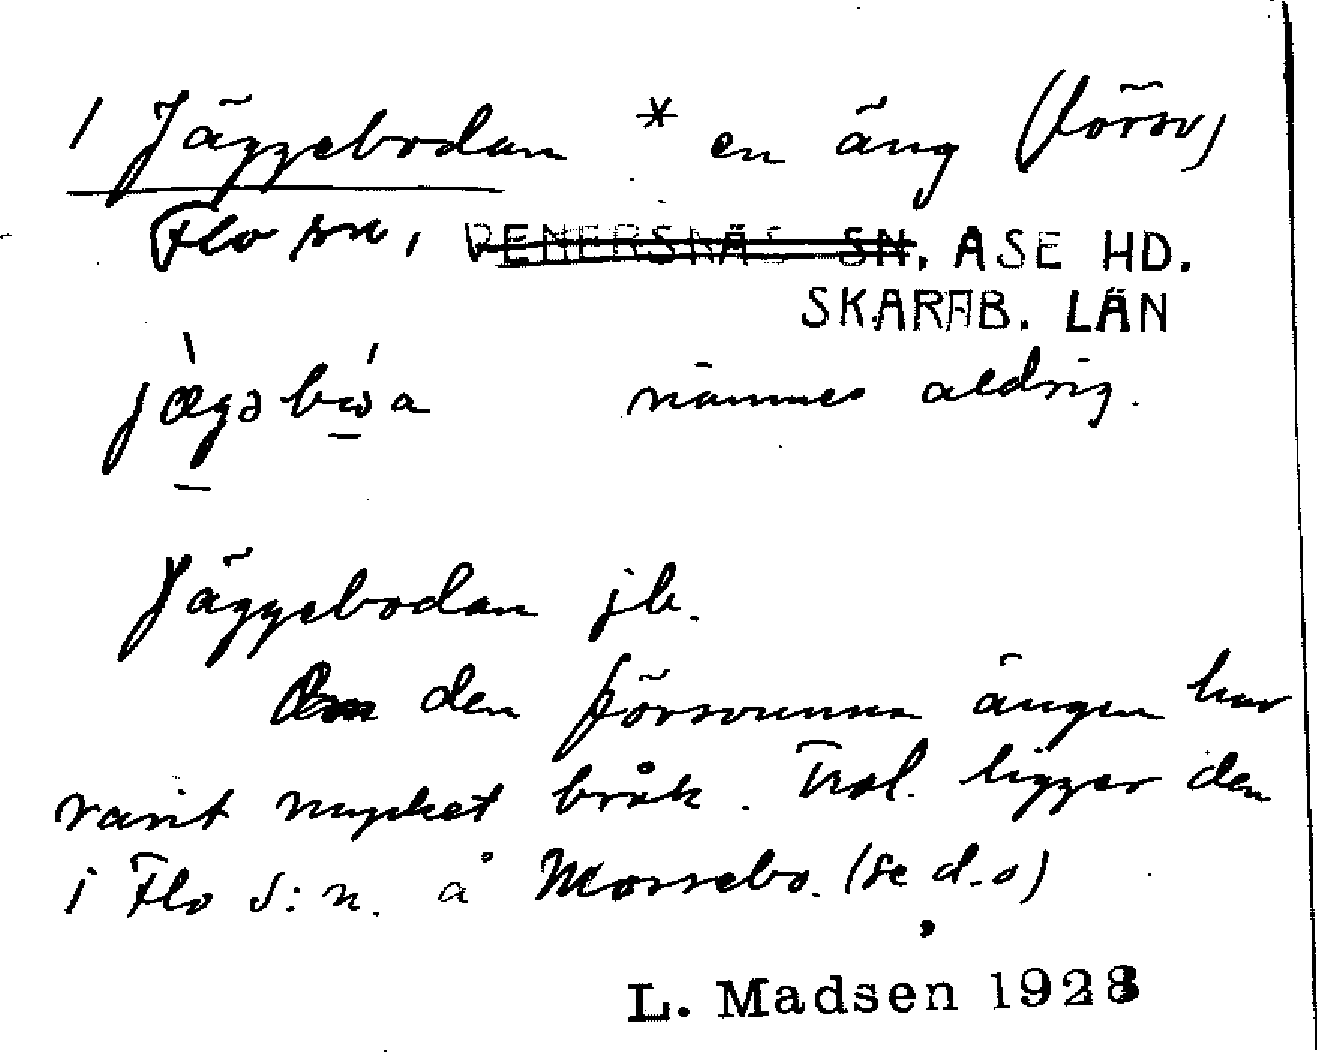 1 Jäggebodan * en äng (försv)
Flo sn, VENERSNÄS SN, ASE HD.
SKARAB. LÄN
jægəbωa nämnes aldrig.
Jäggebodan jb.
Om den försvunna ängen har
varit mycket bråk. Trol. ligger den
i Flo s:n. å Mossebo. (se d.o)
L. Madsen 1928